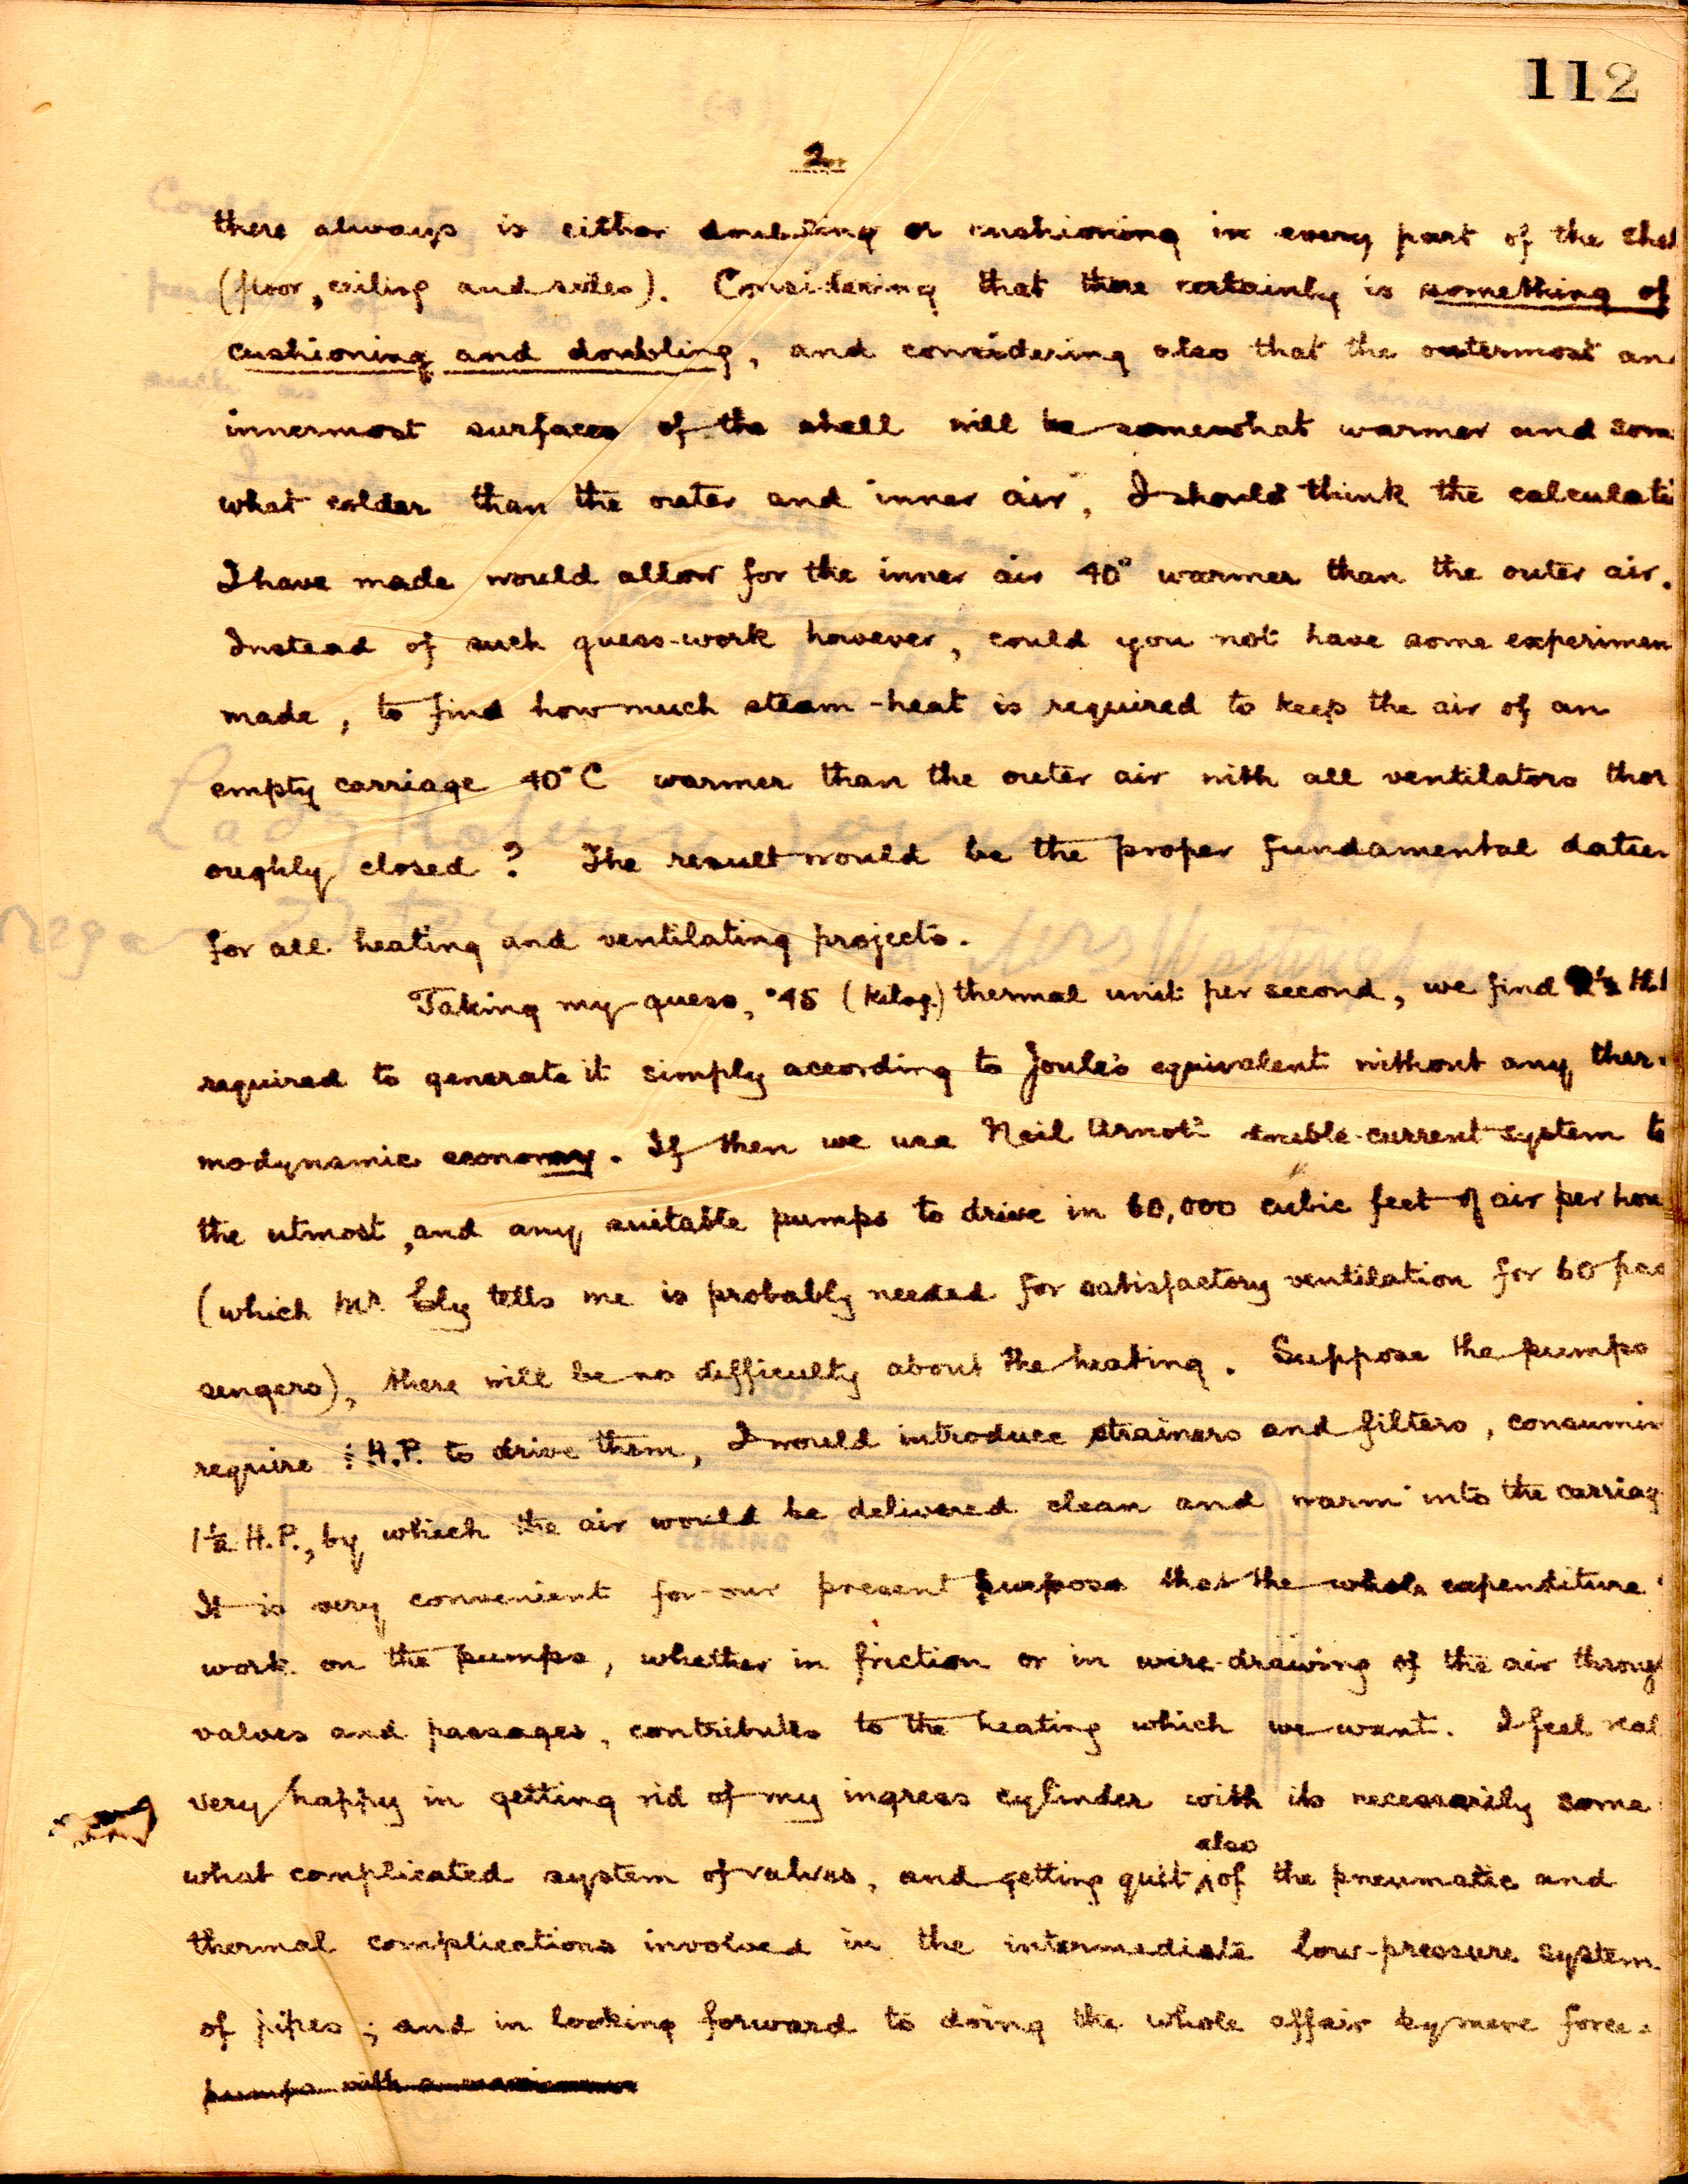 112
2
there always is either doubling or cushioning in every part of the shel
(floor, ceiling and sides). Considering that there certainly is something of
cushioning and doubling, and considering also that the outermost an
innermost surfaces of the shell will be somewhat warmer and some
what colder than the outer and inner air, I should think the calculati
I have made would allow for the inner air 40° warmer than the outer air.
Instead of such guess-work however, could you not have some experimen
made, to find how much steam-heat is required to keep the air of an
empty carriage 40°C warmer than the outer air with all ventilators thor
oughly closed? The result would be the proper fundamental datum
for all heating and ventilating projects.
Taking my guess, ·45 (kilog.) thermal unit per second, we find 2½ H.P
required to generate it simply according to Joule's equivalent without any ther-
modynamic economy. If then we use Neil Arnot's double-current system to
the utmost, and any suitable pumps to drive in 60,000 cubic feet of air per hou
(which Mr Ely tells me is probably needed for satisfactory ventilation for 60 pas
sengers), there will be no difficulty about the heating. Suppose the pumps
require H.P. to drive them, I would introduce strainers and filters, consumin
1½ H.P., by which the air would be delivered clean and warm into the carriag
It is very convenient for our present purpose that the whole expenditure
work on the pumps, whether in friction or in wire-drawing of the air throug
valves and passages, contributes to the heating which we want. I feel real
very happy in getting rid of my ingress cylinder with its necessarily some
what complicated system of valves, and getting quit also of the pneumatic and
thermal complications involved in the intermediate low-pressure system
of pipes; and in looking forward to doing the whole affair by mere force-
pumps with a